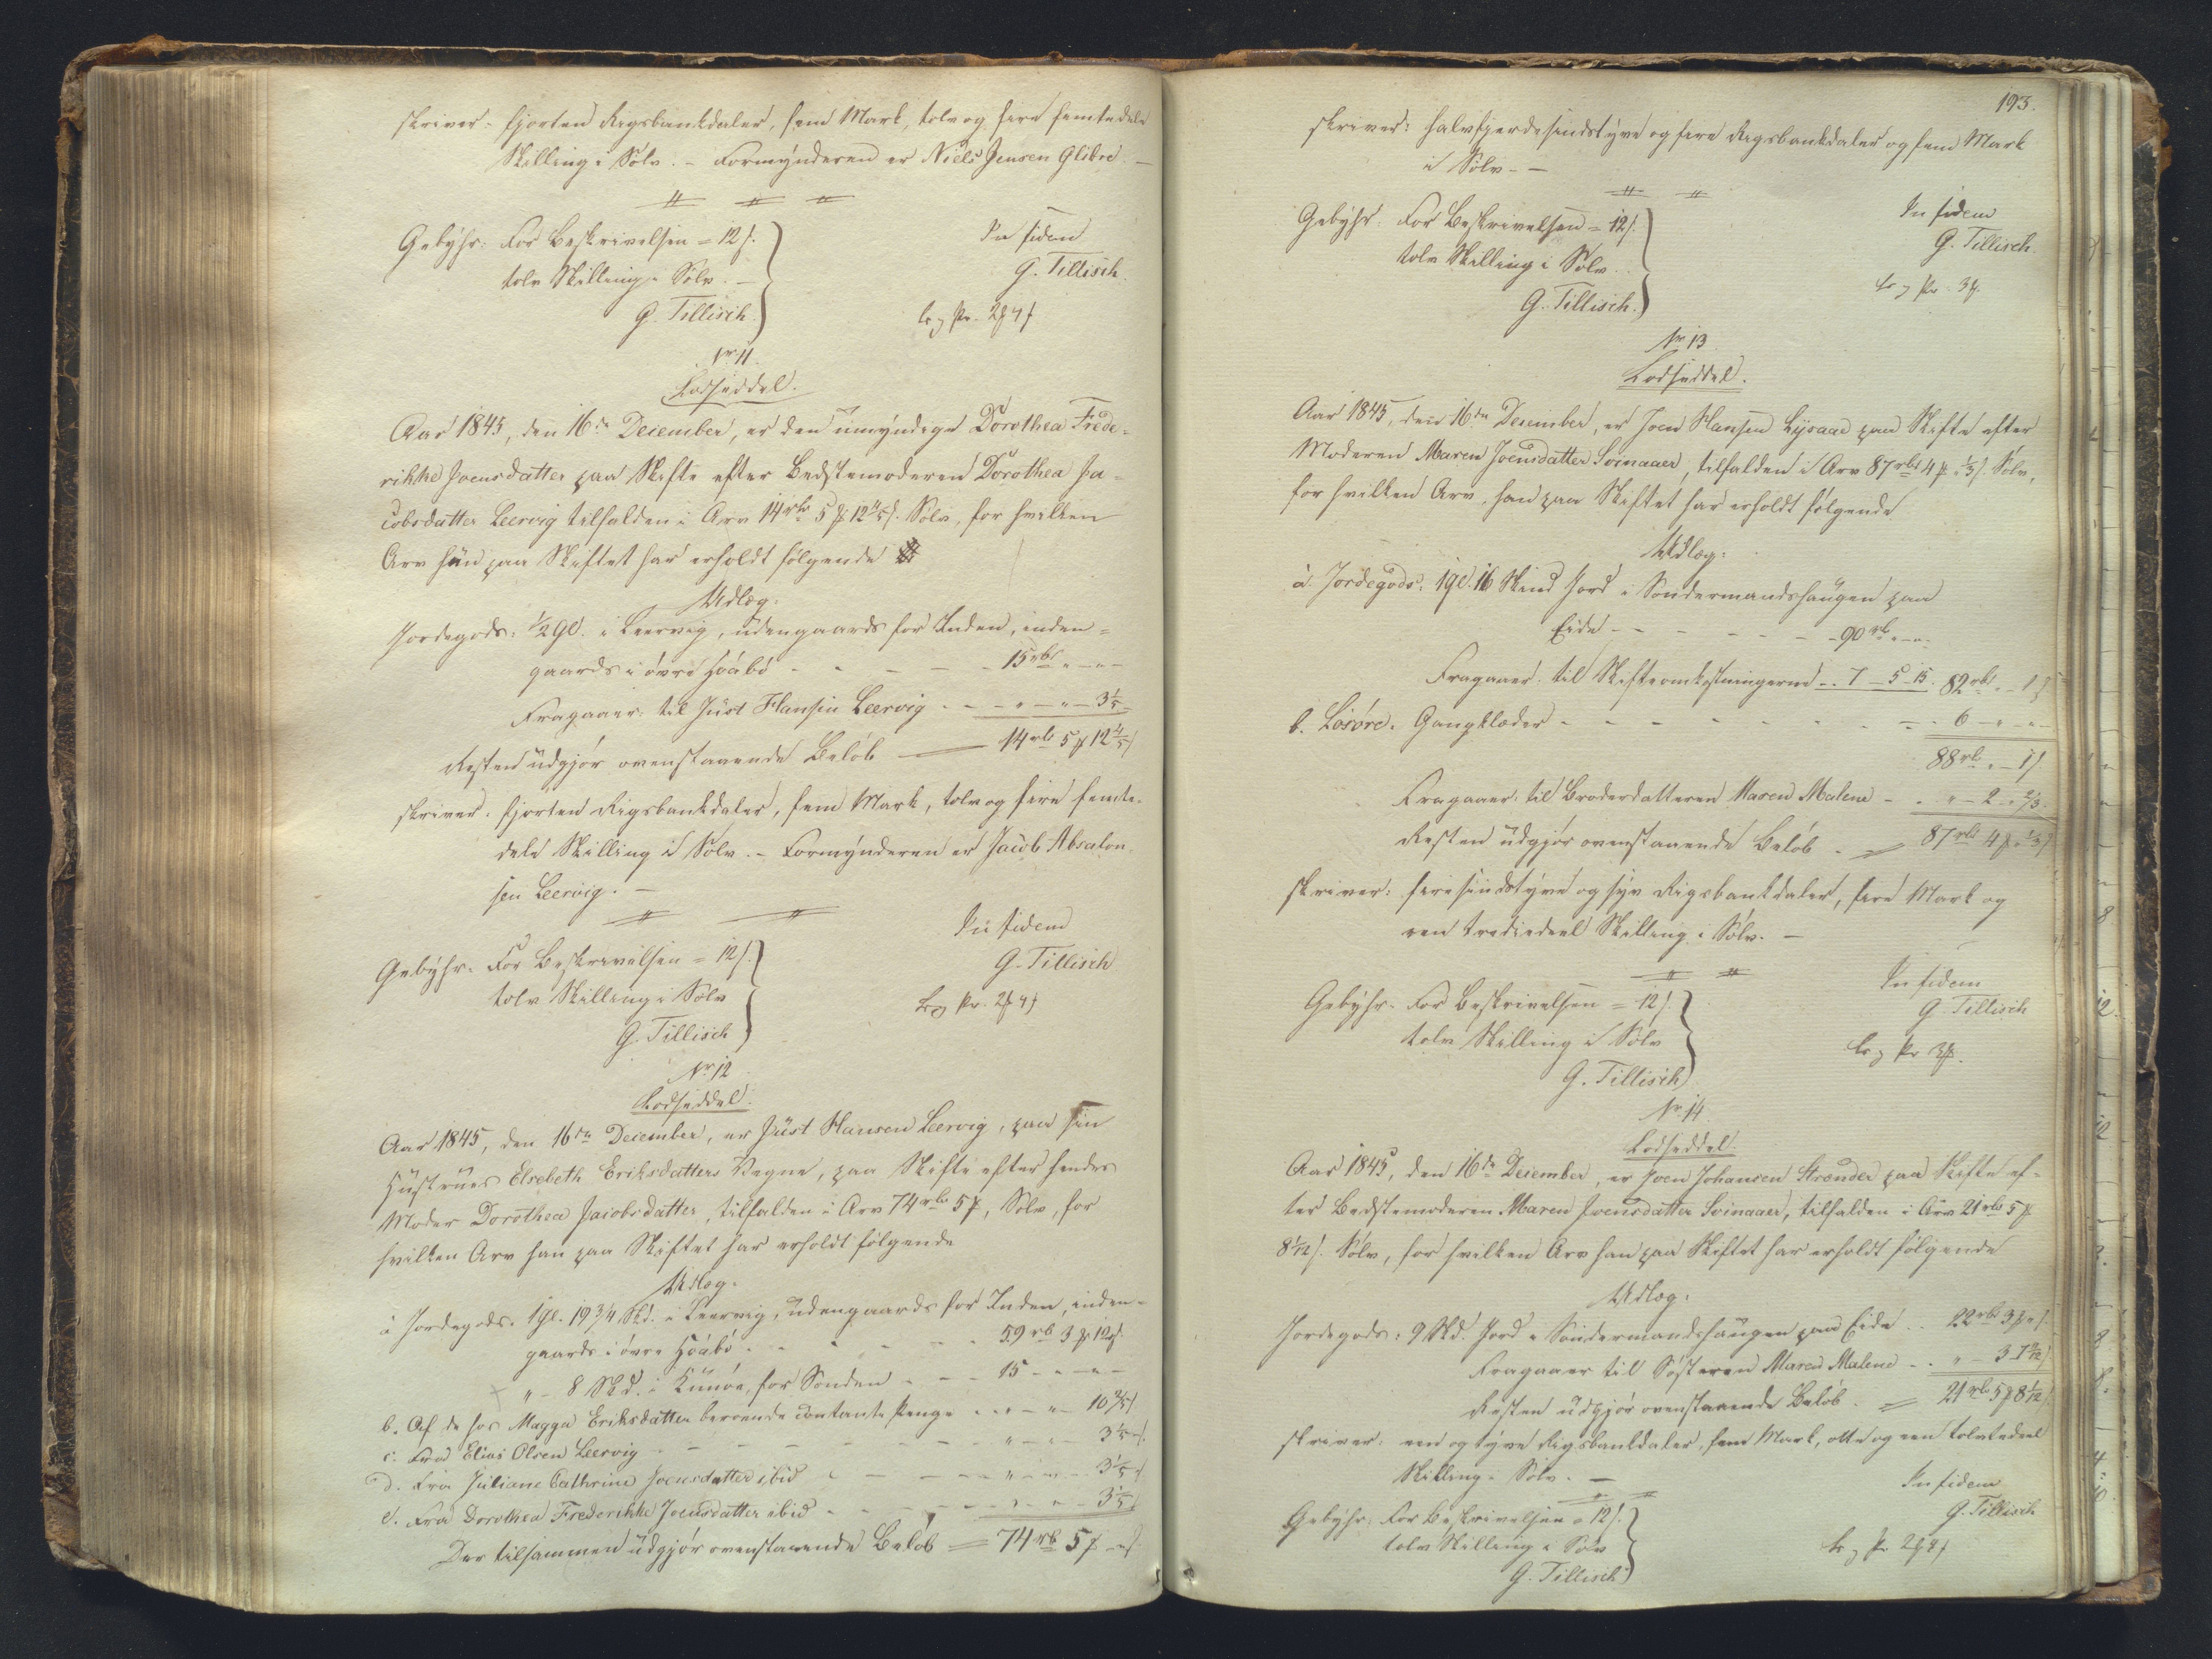 skriver: fjorten Rigsbankdaler, fem Mark, tolv og fire femtedele
Skilling i Sølv. – Formynderen er Niels Jensen Glibre. –
Gebyhr: For Beskrivelsen = 12 s.
tolv Skilling i Sølv. –
G. Tillisch.
In fidem
G. Tillisch.
Nr 11.
Lodseddel.
Aar 1845, den 16de December, er den umyndige Dorothea Frede-
rikke Joensdatter paa Skifte efter Bedstemoderen Dorothea Ja-
cobsdatter Leervig tilfalden i Arv 14 rbd 5 ℳ 12 4/5 s. Sølv, for hvilken
Arv hun paa Skiftet har erholdt følgende
Udlæg:
Jordegods: 1/2 Gl. i Leervig, udengaards for Inden, inden-
gaards i øvre Hoåbø - - - - - 15 rbd " – " –
Fragaaer: til Just Hansen Leervig - - - " – " – 3 1/5 –
Resten udgjør ovenstaaende Beløb — 14 rbd 5 ℳ 12 4/5 s
skriver: fjorten Rigsbankdaler, fem Mark, tolv og fire femte-
dele Skilling i Sølv. – Formynderen er Jacob Absalon-
sen Leervig. –
Gebyhr: For Beskrivelsen = 12 s.
tolv Skilling i Sølv
G. Tillisch
In fidem
G. Tillisch
Nr 12
Lodseddel.
Aar 1845, den 16de December, er Just Hansen Leervig, paa sin
Hustrues Elsebeth Eriksdatters Vegne, paa Skifte efter hendes
Moder Dorothea Jacobsdatter, tilfalden i Arv 74 rbd 5 ℳ, Sølv, for
hvilken Arv han paa Skiftet har erholdt følgende
Udlæg:
a Jordegods: 1 Gl. 19 3/4 Skd. i Leervig, udengaards for Inden, inden-
gaards i øvre Hoåbø - - - - 59 rbd 3 ℳ 12 s.
" – 8 Skd. i Kunöe, for Sønden - - - 15 - " – " –
b. Af de hos Magga Eriksdatter beroende contante Penge - " – " – 10 2/5 s.
c. Fra Elias Olsen Leervig - - - - - " – " – 3 1/5 s.
d. Fra Juliane Cathrine Joensdatter ibid - - - " – " – 3 1/5 s
e. Fra Dorothea Frederikke Joensdatter ibid - - - " – " – 3 1/5 s
Der tilsammen udgjør ovenstaaende Beløb = 74 rbd 5 ℳ – " s
193.
skriver: halvfjerdesindstyve og fire Rigsbankdaler og fem Mark
i Sølv. –
Gebyhr: For Beskrivelsen = 12 s.
tolv Skilling i Sølv.
G. Tillisch.
In fidem
G. Tillisch
Nr 13
Lodseddel.
Aar 1845, den 16de December, er Joen Hansen Lysaae paa Skifte efter
Moderen Maren Joensdatter Svinaaer, tilfalden i Arv 87 rbd 4 ℳ 1/3 s. Sølv,
for hvilken Arv, han paa Skiftet har erholdt følgende
Udlæg:
a. Jordegods: 1 Gl. 16 Skind Jord i Sondermandshaugen paa
Eide - - - - - - 90 rbd " – " –
Fragaaer: til Skifteomkostningerne - 7 – 5 – 15. 82 rbd " – 1 s
b. Løsøre: Gangklæder - - - - - - - 6 – " – " –
88 rbd " – 1 s.
Fragaaer: til Broderdatteren Maren Malene - - " – 2 – " 2/3.
Resten udgjør ovenstaaende Beløb - = 87 rbd 4 ℳ " 1/3 s
skriver: firesindstyve og syv Rigsbankdaler, fire Mark og
een trediedeel Skilling i Sølv. –
Gebyhr: For Beskrivelsen = 12 s.
tolv Skilling i Sølv
G. Tillisch
In fidem
G. Tillisch
Nr 14
Lodseddel
Aar 1845, den 16de December, er Joen Johansen Strænder paa Skifte ef-
ter Bedstemoderen Maren Joensdatter Svinaaer, tilfalden i Arv 21 rbd 5 ℳ
8 1/12 s. Sølv, for hvilken Arv han paa Skiftet har erholdt følgende
Udlæg:
Jordegods: 9 Skd. Jord i Sondermandshaugen paa Eide - - 22 rbd 3 ℳ " s.
Fragaaer til Søsteren Maren Malene - - " – 3 – 7 11/12 s
Resten udgjør ovenstaaende Beløb - = 21 rbd 5 ℳ 8 1/12 s.
skriver: een og tyve Rigsbankdaler, fem Mark, otte og een tolvtedeel
Skilling i Sølv. –
Gebyhr: For Beskrivelsen = 12 s.
tolv Skilling i Sølv
G. Tillisch
In fidem
G. Tillisch